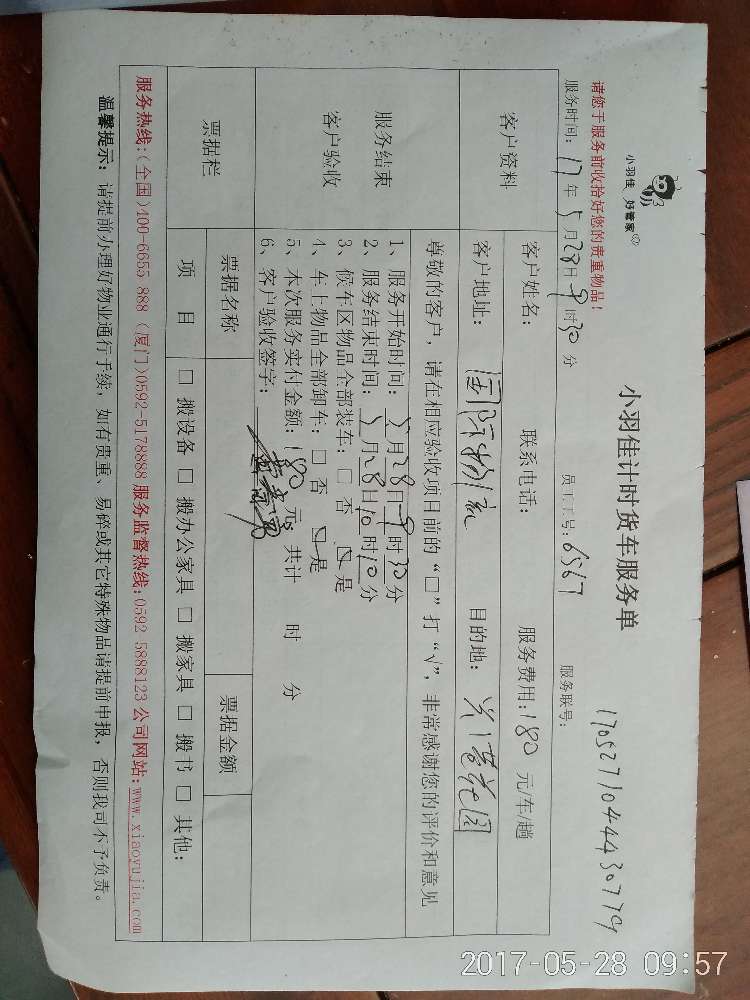 小羽佳 好管家
小羽佳计时货车服务单
17052710444430779
请您于服务前收拾好您的贵重物品！
服务时间：17年5月28日9时30分 员工工号：6567 服务联号：
客户资料
客户姓名： 联系电话： 服务费用：180元/车/趟
客户地址：国际物流 目的地：
尊敬的客户，请在相应验收项目前的“□”打“√”，非常感谢您的评价和意见
服务结束
客户验收
1、服务开始时间：5月28日9时30分
2、服务结束时间：5月28日10时10分
3、候车区物品全部装车：□ 否 ☑ 是
4、车上物品全部卸车：□ 否 ☑ 是
5、本次服务实付金额：180元 共计 时 分
6、客户验收签字：
票据栏
票据名称 票据金额
项 目 □ 搬设备 □ 搬办公家具 □ 搬家具 □ 搬书 □ 其他：
服务热线：（全国）400-6655 888 （厦门）0592-5178888 服务监督热线：0592 5888123 公司网站：www.xiaoyujia.com
温馨提示：请提前办理好物业通行手续，如有贵重、易碎或其它特殊物品请提前申报，否则我司不予负责。
2017-05-28 09:57